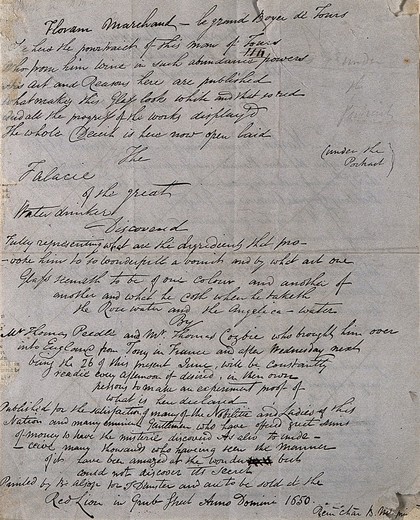 Floram Marchand – le grand Boyer de Tours
Behere the pourtraict of this man of Tours
Who from him wine in such abundance powers
His Art and Reasons here are published
What makes this Glass look white and that so red
and all the progress of the works display'd
The whole Deceit is here now open laid
(under the Portrait)
The
Falacie
of the great
Water drinkers
Discovered
Fully representing what are the ingredients that pro-
-voke him to so wonderfull a vomit and by what art one
Glass seemeth to be of one colour and another of
another and what he doth when he taketh
the Rose water and the Angelica-water
By
Mr Thomas Peedle and Mr Thomas Cozbie who brought him over
into England from Tours in France and after Wednesday next
being the 26 of this present June, will be constantly
readie every afternoon if desired, in their own
persons to make an experiment proof of
what is here declared
Published for the satisfaction of many of the Nobilitie and Ladies of this
Nation and many eminent Gentlemen who have offered great sums
of money to have the misterie discovered As also to unde-
-ceive many thousands who having seen the manner
of it have been amazed at the wonder but
could not discover its Secret
Printed by B. Alsop for T. Dunster and are to be sold at the
Red Lion in Grub Street Anno Domini 1650.